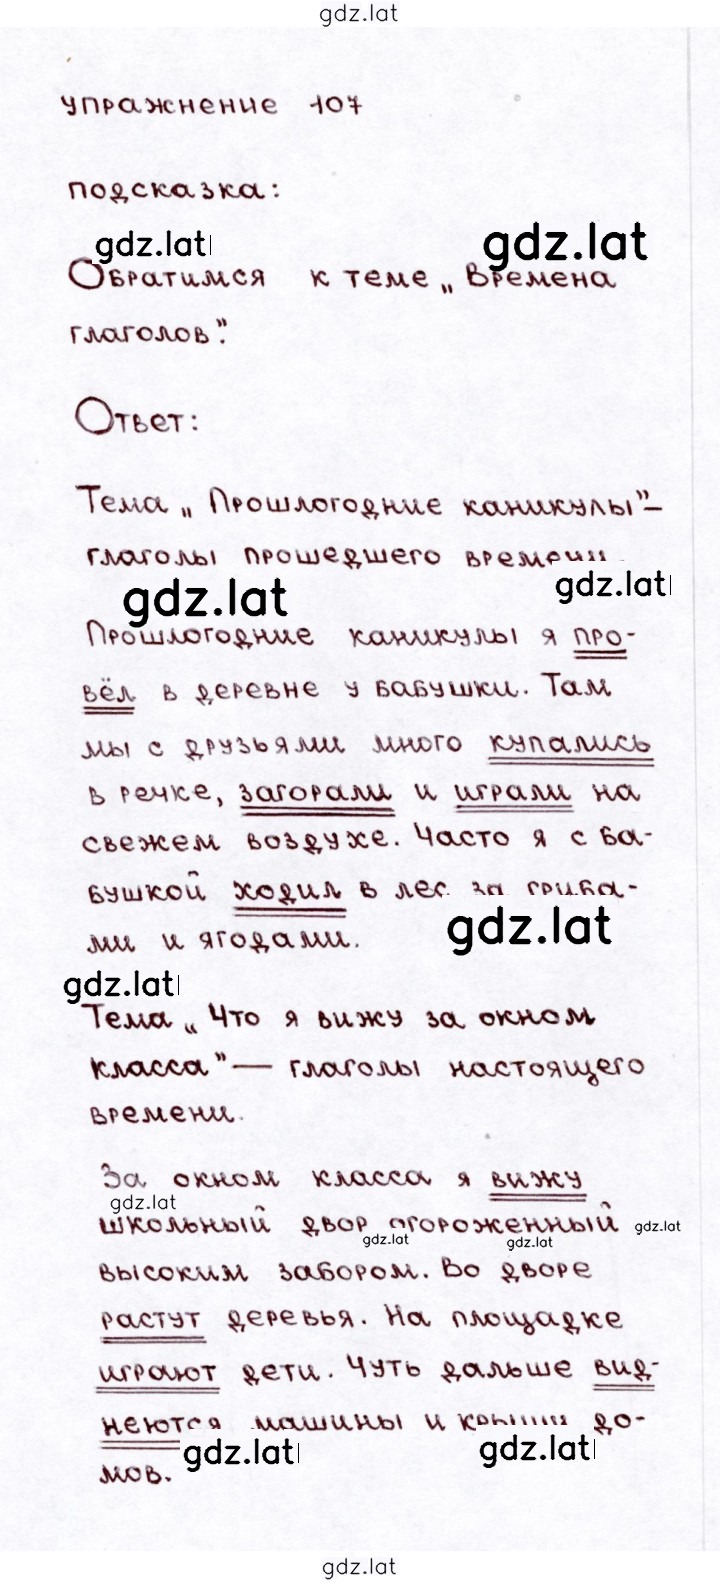 gdz.lat
упражнение 107
подсказка:
gdz.lat gdz.lat
Обратимся к теме „Времена
глаголов".
Ответ:
Тема „Прошлогодние каникулы"–
глаголы прошедшего времени
gdz.lat gdz.lat
Прошлогодние каникулы я про-
вёл в деревне у бабушки. Там
мы с друзьями много купались
в речке, загорали и играли на
свежем воздухе. Часто я с ба-
бушкой ходил в лес за гриба-
gdz.lat
ми и ягодами.
gdz.lat
Тема „Что я вижу за окном
класса" — глаголы настоящего
времени.
За окном класса я вижу
gdz.lat
школьный двор огороженный gdz.lat
gdz.lat gdz.lat
высоким забором. Во дворе
растут деревья. На площадке
играют дети. Чуть дальше вид-
неются машины и крыши до-
gdz.lat gdz.lat
мов.
gdz.lat